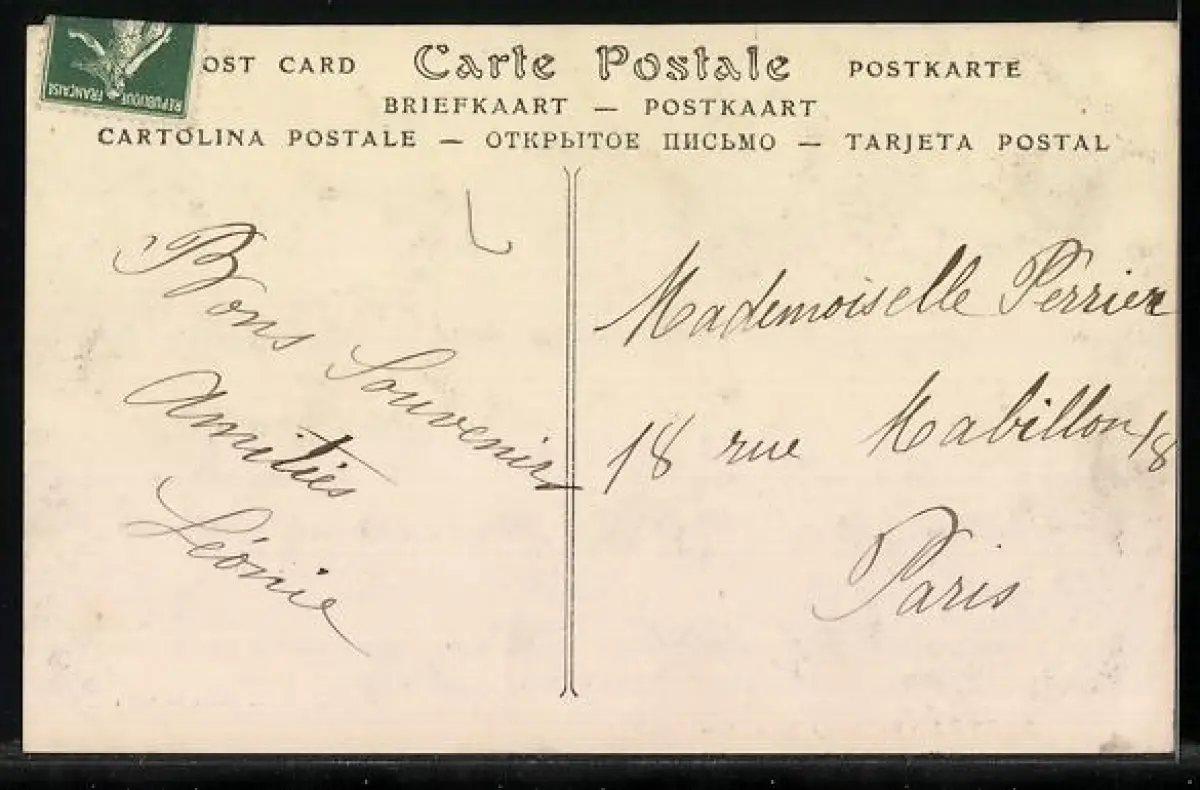 OST CARD Carte Postale POSTKARTE
BRIEFKAART — POSTKAART
CARTOLINA POSTALE — ОТКРЫТОЕ ПИСЬМО — TARJETA POSTAL
REPUBLIQUE FRANÇAISE
Bons Souvenirs
Amitiés
Léonie
Mademoiselle Perrier
18 rue Mabillon 18
Paris